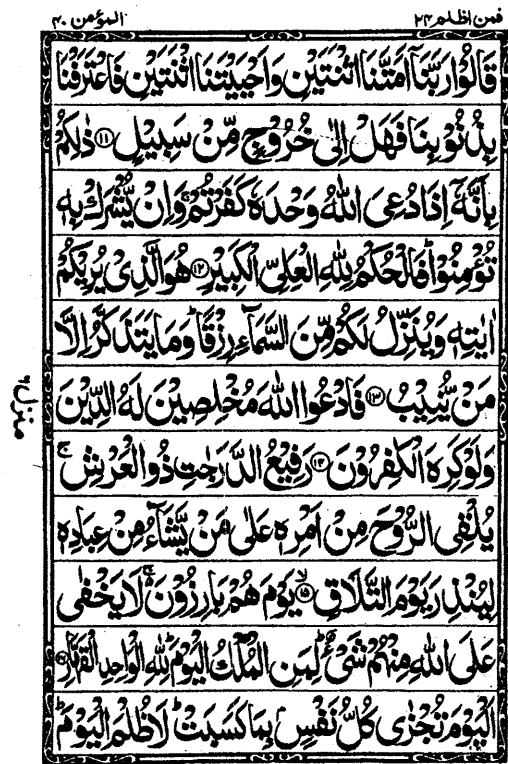 فمن اظلم ۲۴
المؤمن ۴۰
قَالُوۡا رَبَّنَاۤ اَمَتَّنَا اثۡنَتَيۡنِ وَاَحۡيَيۡتَنَا اثۡنَتَيۡنِ فَاعۡتَرَفۡنَا
بِذُنُوۡبِنَا فَهَلۡ اِلٰى خُرُوۡجٍ مِّنۡ سَبِيۡلٍ ۱۱ ذٰلِكُمۡ
بِاَنَّهٗۤ اِذَا دُعِىَ اللّٰهُ وَحۡدَهٗ كَفَرۡتُمۡ ۚ وَاِنۡ يُّشۡرَكۡ بِهٖ
تُؤۡمِنُوۡا ؕ فَالۡحُكۡمُ لِلّٰهِ الۡعَلِىِّ الۡكَبِيۡرِ ۱۲ هُوَ الَّذِىۡ يُرِيۡكُمۡ
اٰيٰتِهٖ وَيُنَزِّلُ لَكُمۡ مِّنَ السَّمَآءِ رِزۡقًا ؕ وَمَا يَتَذَكَّرُ اِلَّا
مَنۡ يُّنِيۡبُ ۱۳ فَادۡعُوا اللّٰهَ مُخۡلِصِيۡنَ لَهُ الدِّيۡنَ
وَلَوۡ كَرِهَ الۡكٰفِرُوۡنَ ۱۴ رَفِيۡعُ الدَّرَجٰتِ ذُو الۡعَرۡشِ ۚ
يُلۡقِى الرُّوۡحَ مِنۡ اَمۡرِهٖ عَلٰى مَنۡ يَّشَآءُ مِنۡ عِبَادِهٖ
لِيُنۡذِرَ يَوۡمَ التَّلَاقِ ۙ ۱۵ يَوۡمَ هُمۡ بَارِزُوۡنَ ۚ لَا يَخۡفٰى
عَلَى اللّٰهِ مِنۡهُمۡ شَىۡءٌ ؕ لِمَنِ الۡمُلۡكُ الۡيَوۡمَ ؕ لِلّٰهِ الۡوَاحِدِ الۡقَهَّارِ ۱۶
اَلۡيَوۡمَ تُجۡزٰى كُلُّ نَفۡسٍۢ بِمَا كَسَبَتۡ ؕ لَا ظُلۡمَ الۡيَوۡمَ ؕ
منزل ۶